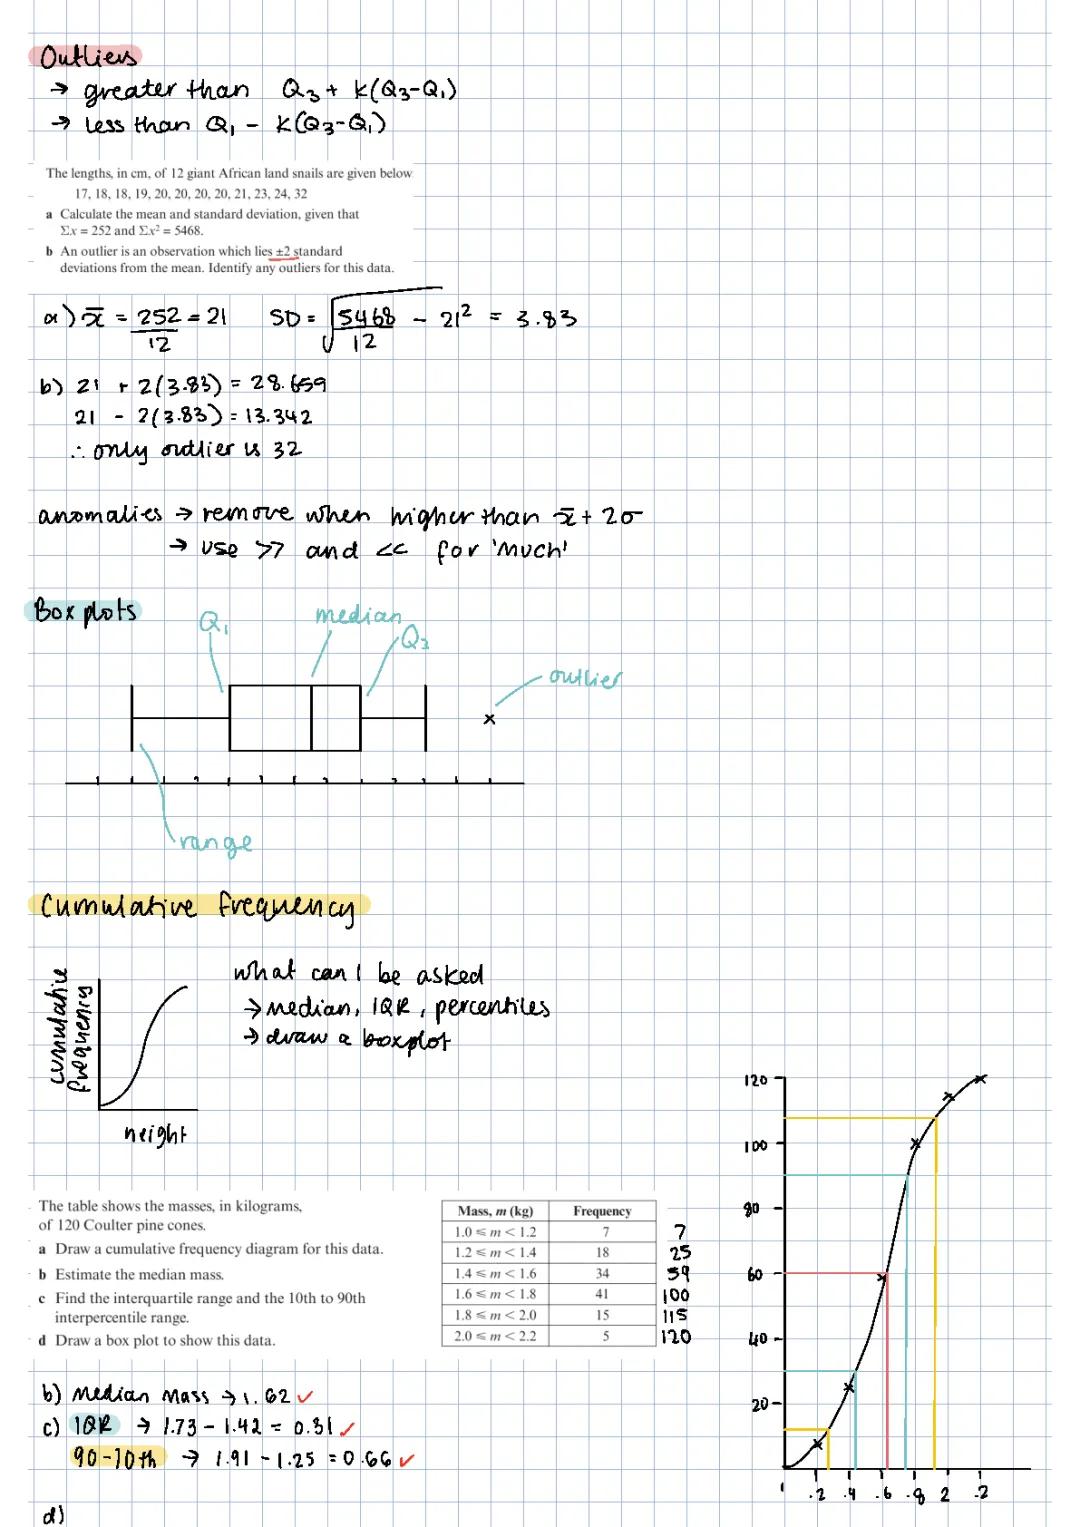 Outliers
→ greater than Q₃ + k(Q₃-Q₁)
→ less than Q₁ - k(Q₃-Q₁)
The lengths, in cm, of 12 giant African land snails are given below
17, 18, 18, 19, 20, 20, 20, 20, 21, 23, 24, 32
a Calculate the mean and standard deviation, given that
Σx = 252 and Σx² = 5468.
b An outlier is an observation which lies ±2 standard
deviations from the mean. Identify any outliers for this data.
a) x̄ = 252/12 = 21 SD = √(5468/12 - 21²) = 3.83
b) 21 + 2(3.83) = 28.659
21 - 2(3.83) = 13.342
∴ only outlier is 32
anomalies → remove when higher than x̄ + 2σ
→ use >> and << for 'much'
Box plots
Q₁
median
Q₃
outlier
range
Cumulative frequency
cumulative
frequency
height
what can I be asked
→ median, IQR, percentiles
→ draw a boxplot
The table shows the masses, in kilograms,
of 120 Coulter pine cones.
a Draw a cumulative frequency diagram for this data.
b Estimate the median mass.
c Find the interquartile range and the 10th to 90th
interpercentile range.
d Draw a box plot to show this data.
Mass, m (kg) Frequency
1.0 ≤ m < 1.2 7 7
1.2 ≤ m < 1.4 18 25
1.4 ≤ m < 1.6 34 59
1.6 ≤ m < 1.8 41 100
1.8 ≤ m < 2.0 15 115
2.0 ≤ m < 2.2 5 120
120
100
80
60
40
20
1 .2 .4 .6 .8 2 .2
b) Median Mass → 1.62 ✓
c) IQR → 1.73 - 1.42 = 0.31 ✓
90-10th → 1.91 - 1.25 = 0.66 ✓
d)